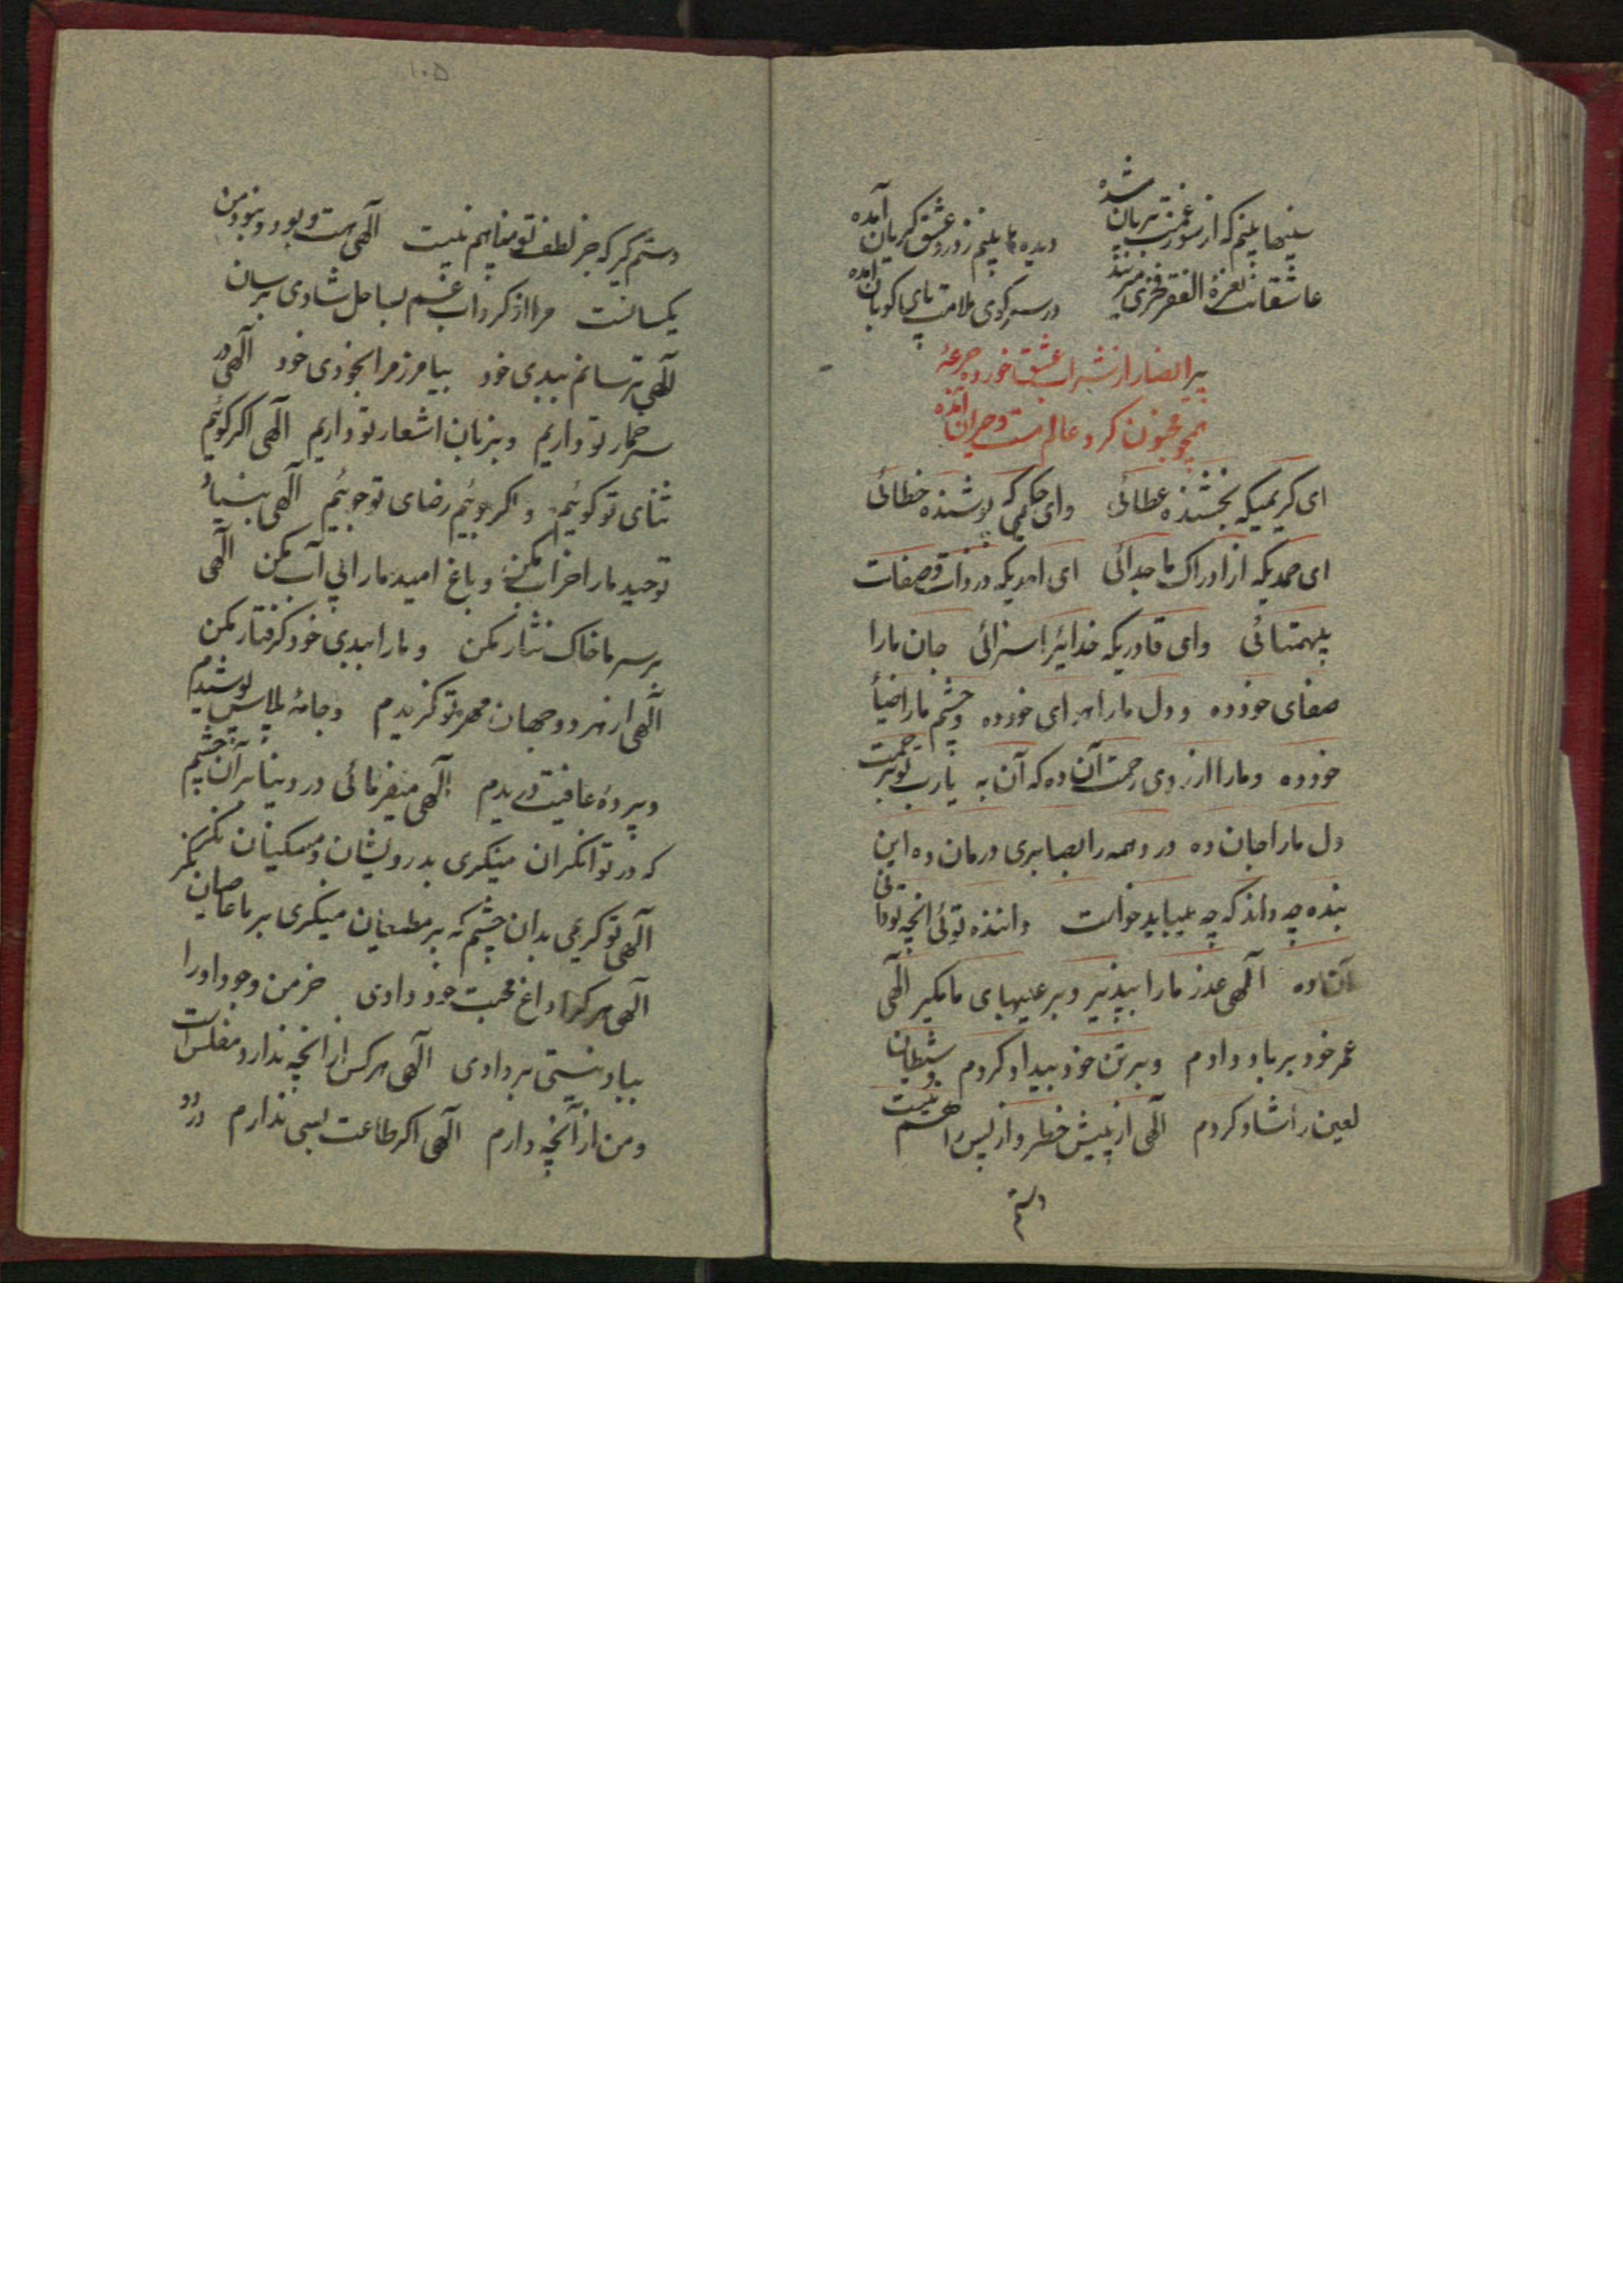 سینها بینم که از سوز غمت بریان شده دیده ها بینم ز درد عشق گریان آمده
عاشقانت نعرهٔ الفقر فخری میزنند در سر کوی ملامت پای کوبان آمده
پیر انصار از شراب عشق خورده جرعهٔ
همچو مجنون گرد عالم مست و حیران آمده
ای کریمیکه بخشنده عطائی وای حکیمی که پوشنده خطائی
ای صمدیکه از ادراک ما جدائی ای احدیکه در ذات و صفات
بیهمتائی وای قادریکه خدائیرا سزائی جان ما را
صفای خود ده و دل ما را هوای خود ده و چشم ما را ضیأ
خود ده و ما را از روی رحمت آن ده که آن به یا رب تو برحمت
دل ما را جان ده درد همه را بصابری درمان ده این
بنده چه داند که چه میباید خواست داننده توئی آنچه تو دانی
آن ده الهی عذر ما را بپذیر و بر عیبهای ما مگیر الهی
عمر خود بر باد دادم و بر تن خود بیداد کردم و شیطان
لعین را شاد کردم الهی از پیش خطر و از پس راهم نیست
دستم
۱۰۵
دستم گیر که جز لطف تو پناهم نیست الهی هست و بود و نبود من
یکسانست مرا از گرداب غم بساحل شادی برسان
الهی ترسانم ببدی خود بیامرز مرا بخودی خود الهی در
سر خمار تو داریم و بزبان اشعار تو داریم الهی اگر گوئیم
ثنای تو گوئیم و اگر جوئیم رضای تو جوئیم الهی بنیاد
توحید ما را خراب مکن و باغ امید ما را بی آب مکن الهی
بر سر ما خاک نثار مکن و ما را ببدی خود گرفتار مکن
الهی از هر دو جهان مهر تو گزیدم و جامهٔ پلاس پوشیدم
و پردهٔ عافیت دریدم الهی میفرمائی در دنیا بر آن چشم
که در توانگران مینگری بدرویشان و مسکینان نگر
الهی تو کریمی بدان چشم که بر مطیعان مینگری بر ما عاصیان نگر
الهی هر کرا داغ محبت خود دادی خرمن وجود او را
بباد نیستی بر دادی الهی هر کس از آنچه ندارد مفلس است
و من از آنچه دارم الهی اگر طاعت بسی ندارم در دو